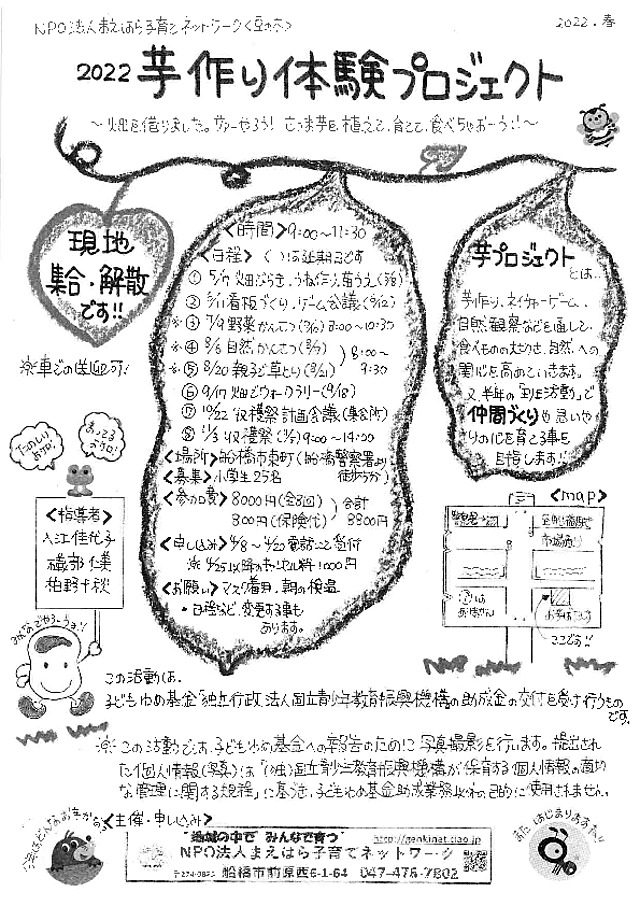 NPO法人まえはら子育てネットワーク<豆の木>
2022.春
2022 芋作り体験プロジェクト
～畑を借りました。さぁーやろう! さつま芋を植えて、育てて、食べちゃおーう!!～
現地
集合・解散
です!!
※車での送迎可!
<時間>9:00～11:30
<日程> ( )は延期日です
① 5/7 畑びらき、うね作り、苗うえ(5/8)
② 6/11 看板づくり、ゲーム会議(6/12)
※③ 7/9 野菜かんさつ(7/10) 8:00～10:30
※④ 8/6 自然かんさつ(8/7)
※⑤ 8/20 親子草とり(8/21)
8:00～
9:30
⑥ 9/17 畑でウォークラリー(9/18)
⑦ 10/22 収穫祭計画会議(集会所)
⑧ 11/3 収穫祭 9:00～14:00
<場所>船橋市東町(船橋警察署より
徒歩5分)
<募集>小学生25名
<参加費>8000円(全8回)
800円(保険代)
合計
8800円
<申し込み>4/8～4/20 電話にて受付
※4/25以降のキャンセル料1000円
<お願い>マスク着用、朝の検温
・日程など、変更する事も
あります。
芋プロジェクト
とは...
芋作り、ネイチャーゲーム、
自然観察などを通して、
食べものの大切さ、自然への
関心を高めていきます。
又、半年の「班活動」で
仲間づくりや思いや
りの心を育てる事を
目指します!!
たのしい
よ
まってる
よ
<指導者>
入江佳代子
磯部仁美
柏野千秋
みんなでやろーうよ!!
<map>
市場通り
ここです!!
この活動は、
子どもゆめ基金「独立行政法人国立青少年教育振興機構の助成金の交付を受け行うもの
です。
※この活動では、子どもゆめ基金への報告のために写真撮影を行います。提出され
た個人情報(写真)は「(独)国立青少年教育振興機構が保有する個人情報の適切
な管理に関する規程」に基づき、子どもゆめ基金助成業務以外の目的に使用されません。
<主催・申し込み>
今年はどんなおイモかな
地域の中で みんなで育つ
http://genkinet.ciao.jp
NPO法人まえはら子育てネットワーク
〒274-0825 船橋市前原西6-1-64 047-475-7802
また はじまりますよー!!